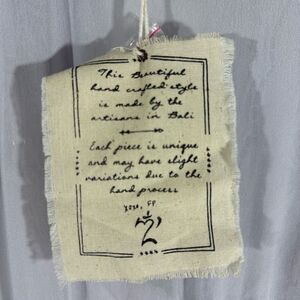 This Beautiful
hand crafted style
is made by the
artisans in Bali
Each piece is unique
and may have slight
variations due to the
hand process